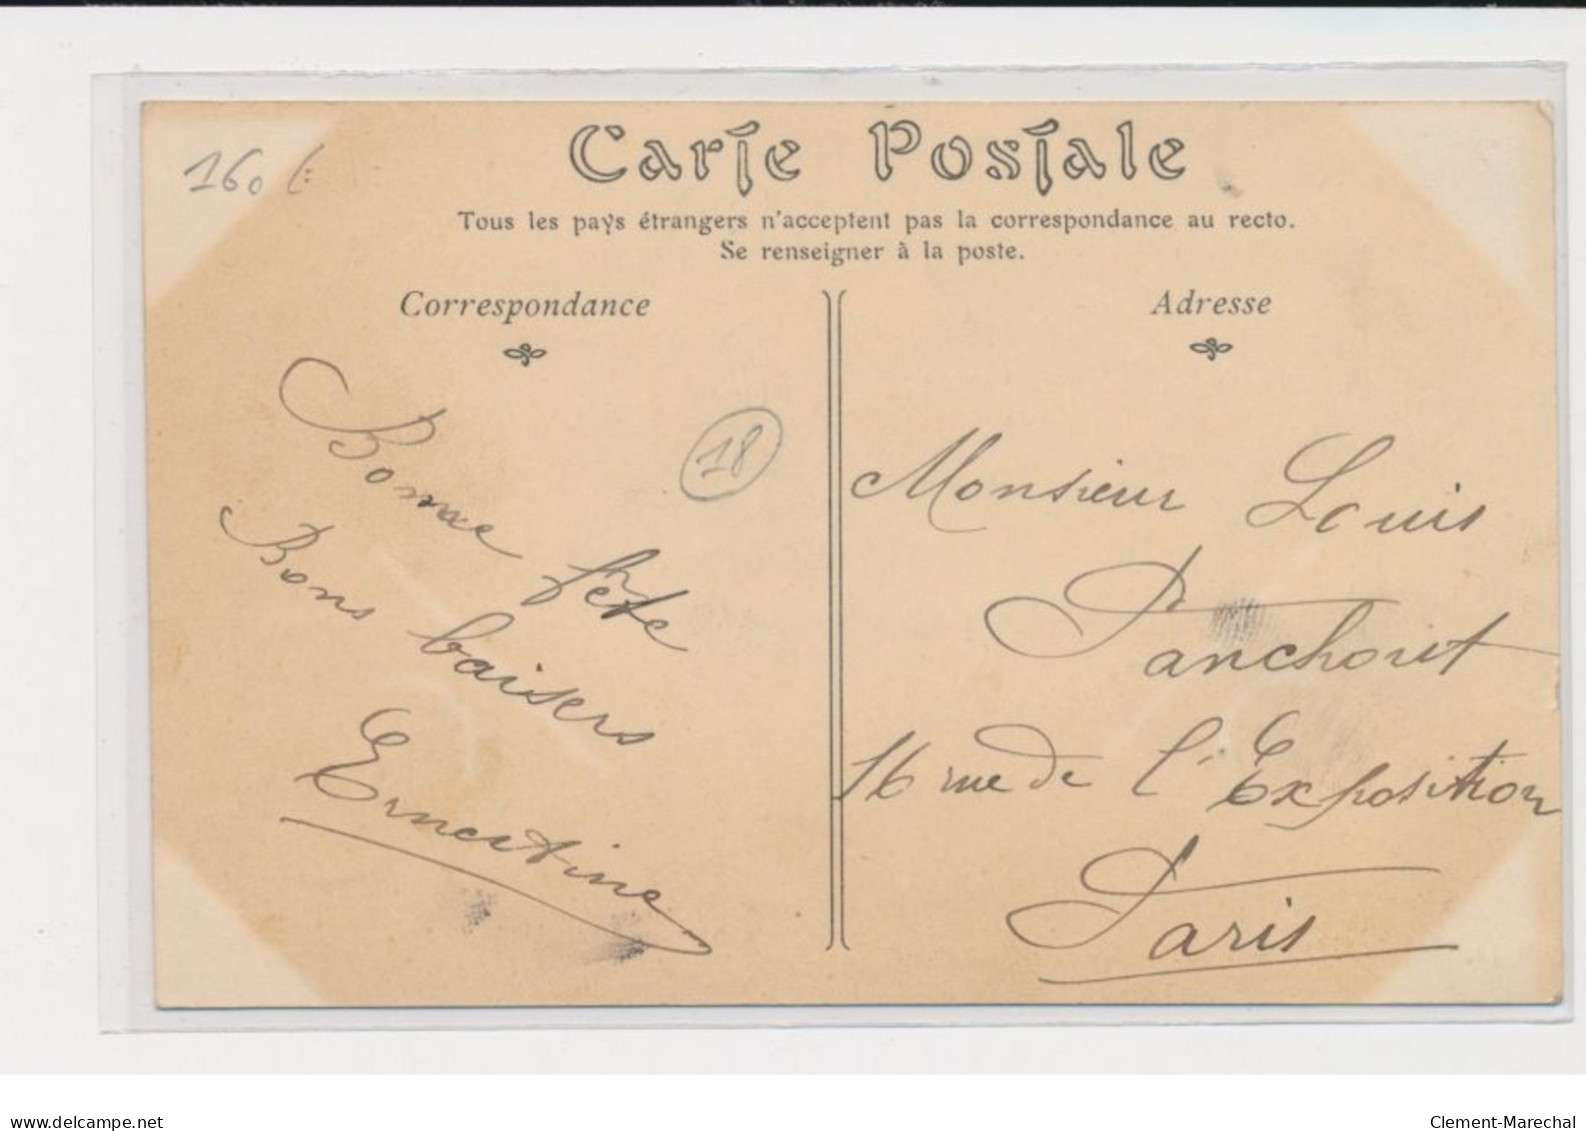 160 f
Carte Postale
Tous les pays étrangers n'acceptent pas la correspondance au recto.
Se renseigner à la poste.
Correspondance
Adresse
18
Bonne fête
Bons baisers
Ernestine
Monsieur Louis
Panchout
16 rue de l'Exposition
Paris
www.delcampe.net
Clement-Marechal